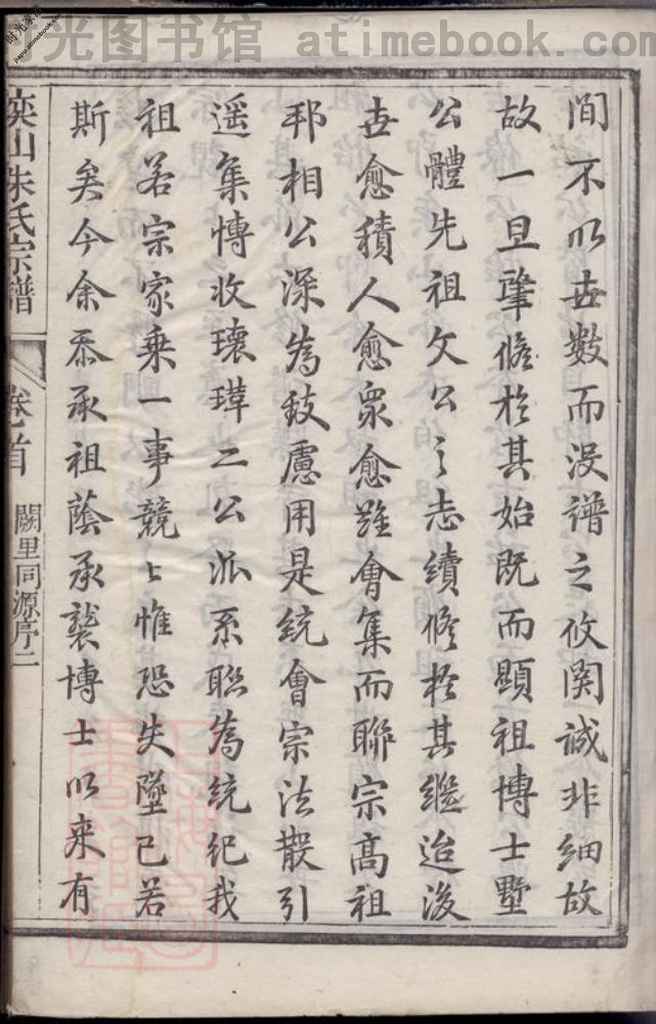 时光图书馆 atimebook.com
間不以世數而没譜之攸関诚非细故
故一旦肇修於其始既而顯祖博士墅
公體先祖文公之志續修於其繼迨後
世愈積人愈眾愈難會集而聯宗高祖
邦相公深為致慮用是統會宗法散引
遥集博收瓌瑋二公派系聯為統纪我
祖若宗家乘一事競〻惟恐失墜已若
斯矣今余忝承祖蔭承襲博士以来有
奕山朱氏宗譜
卷首
闕里同源序二